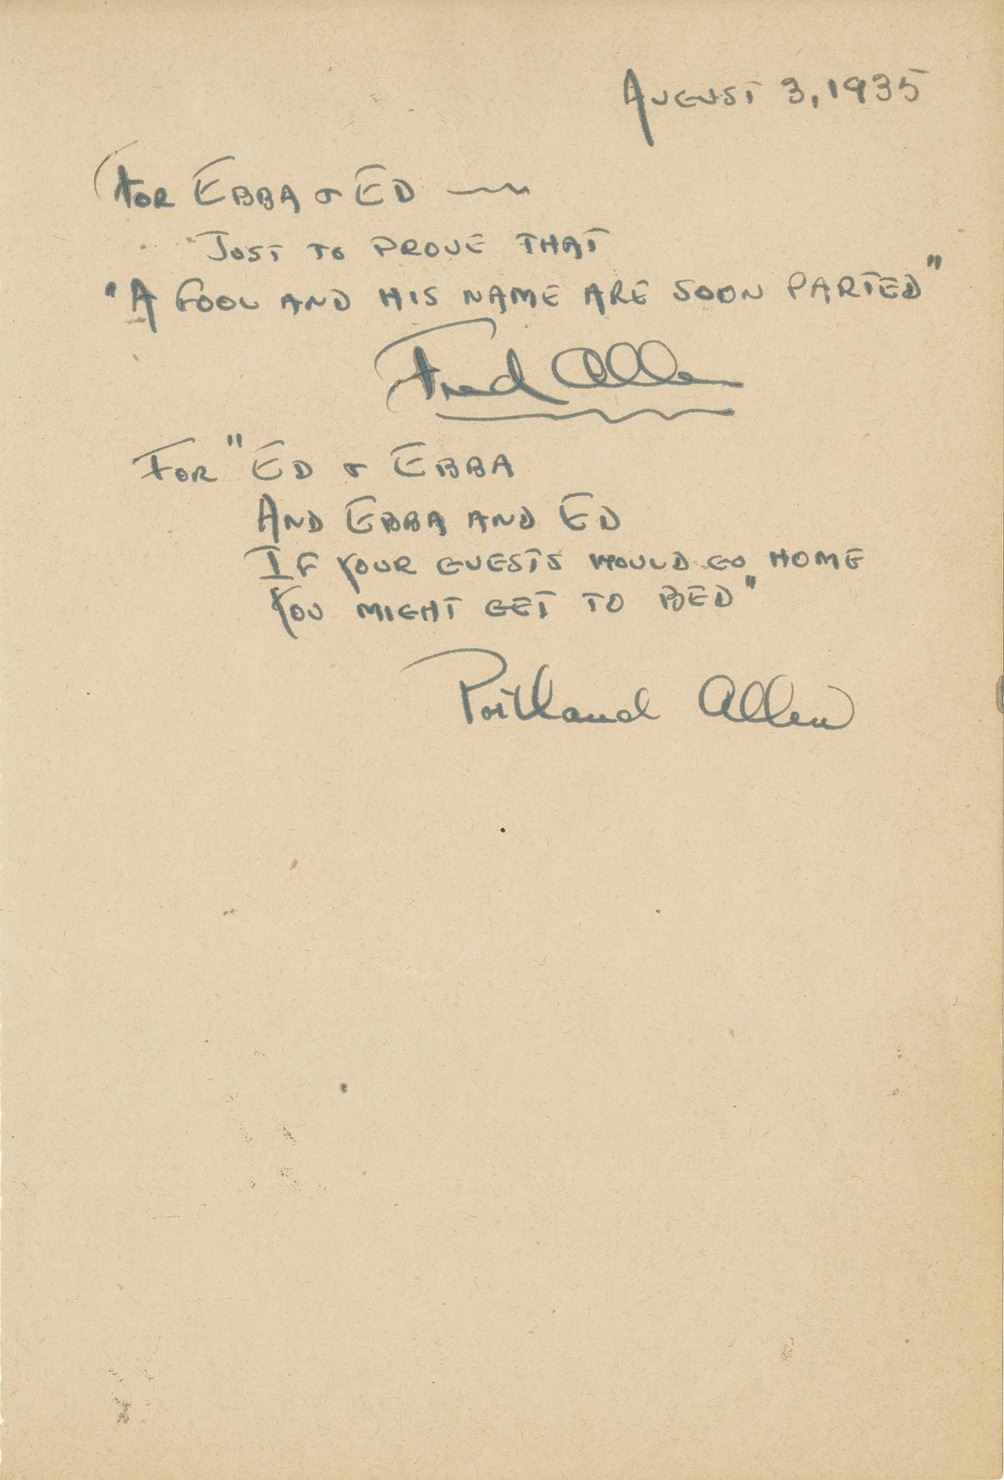 AUGUST 3, 1935
FOR EBBA & ED —
JUST TO PROVE THAT
"A FOOL AND HIS NAME ARE SOON PARTED"
Fred Allen
FOR "ED & EBBA
AND EBBA AND ED
IF YOUR GUESTS WOULD GO HOME
YOU MIGHT GET TO BED"
Portland Allen